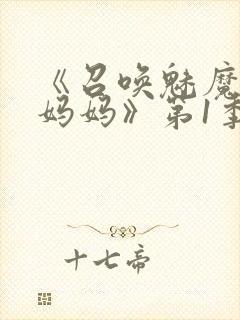 《召唤魅魔
妈妈》第1季
十七帝